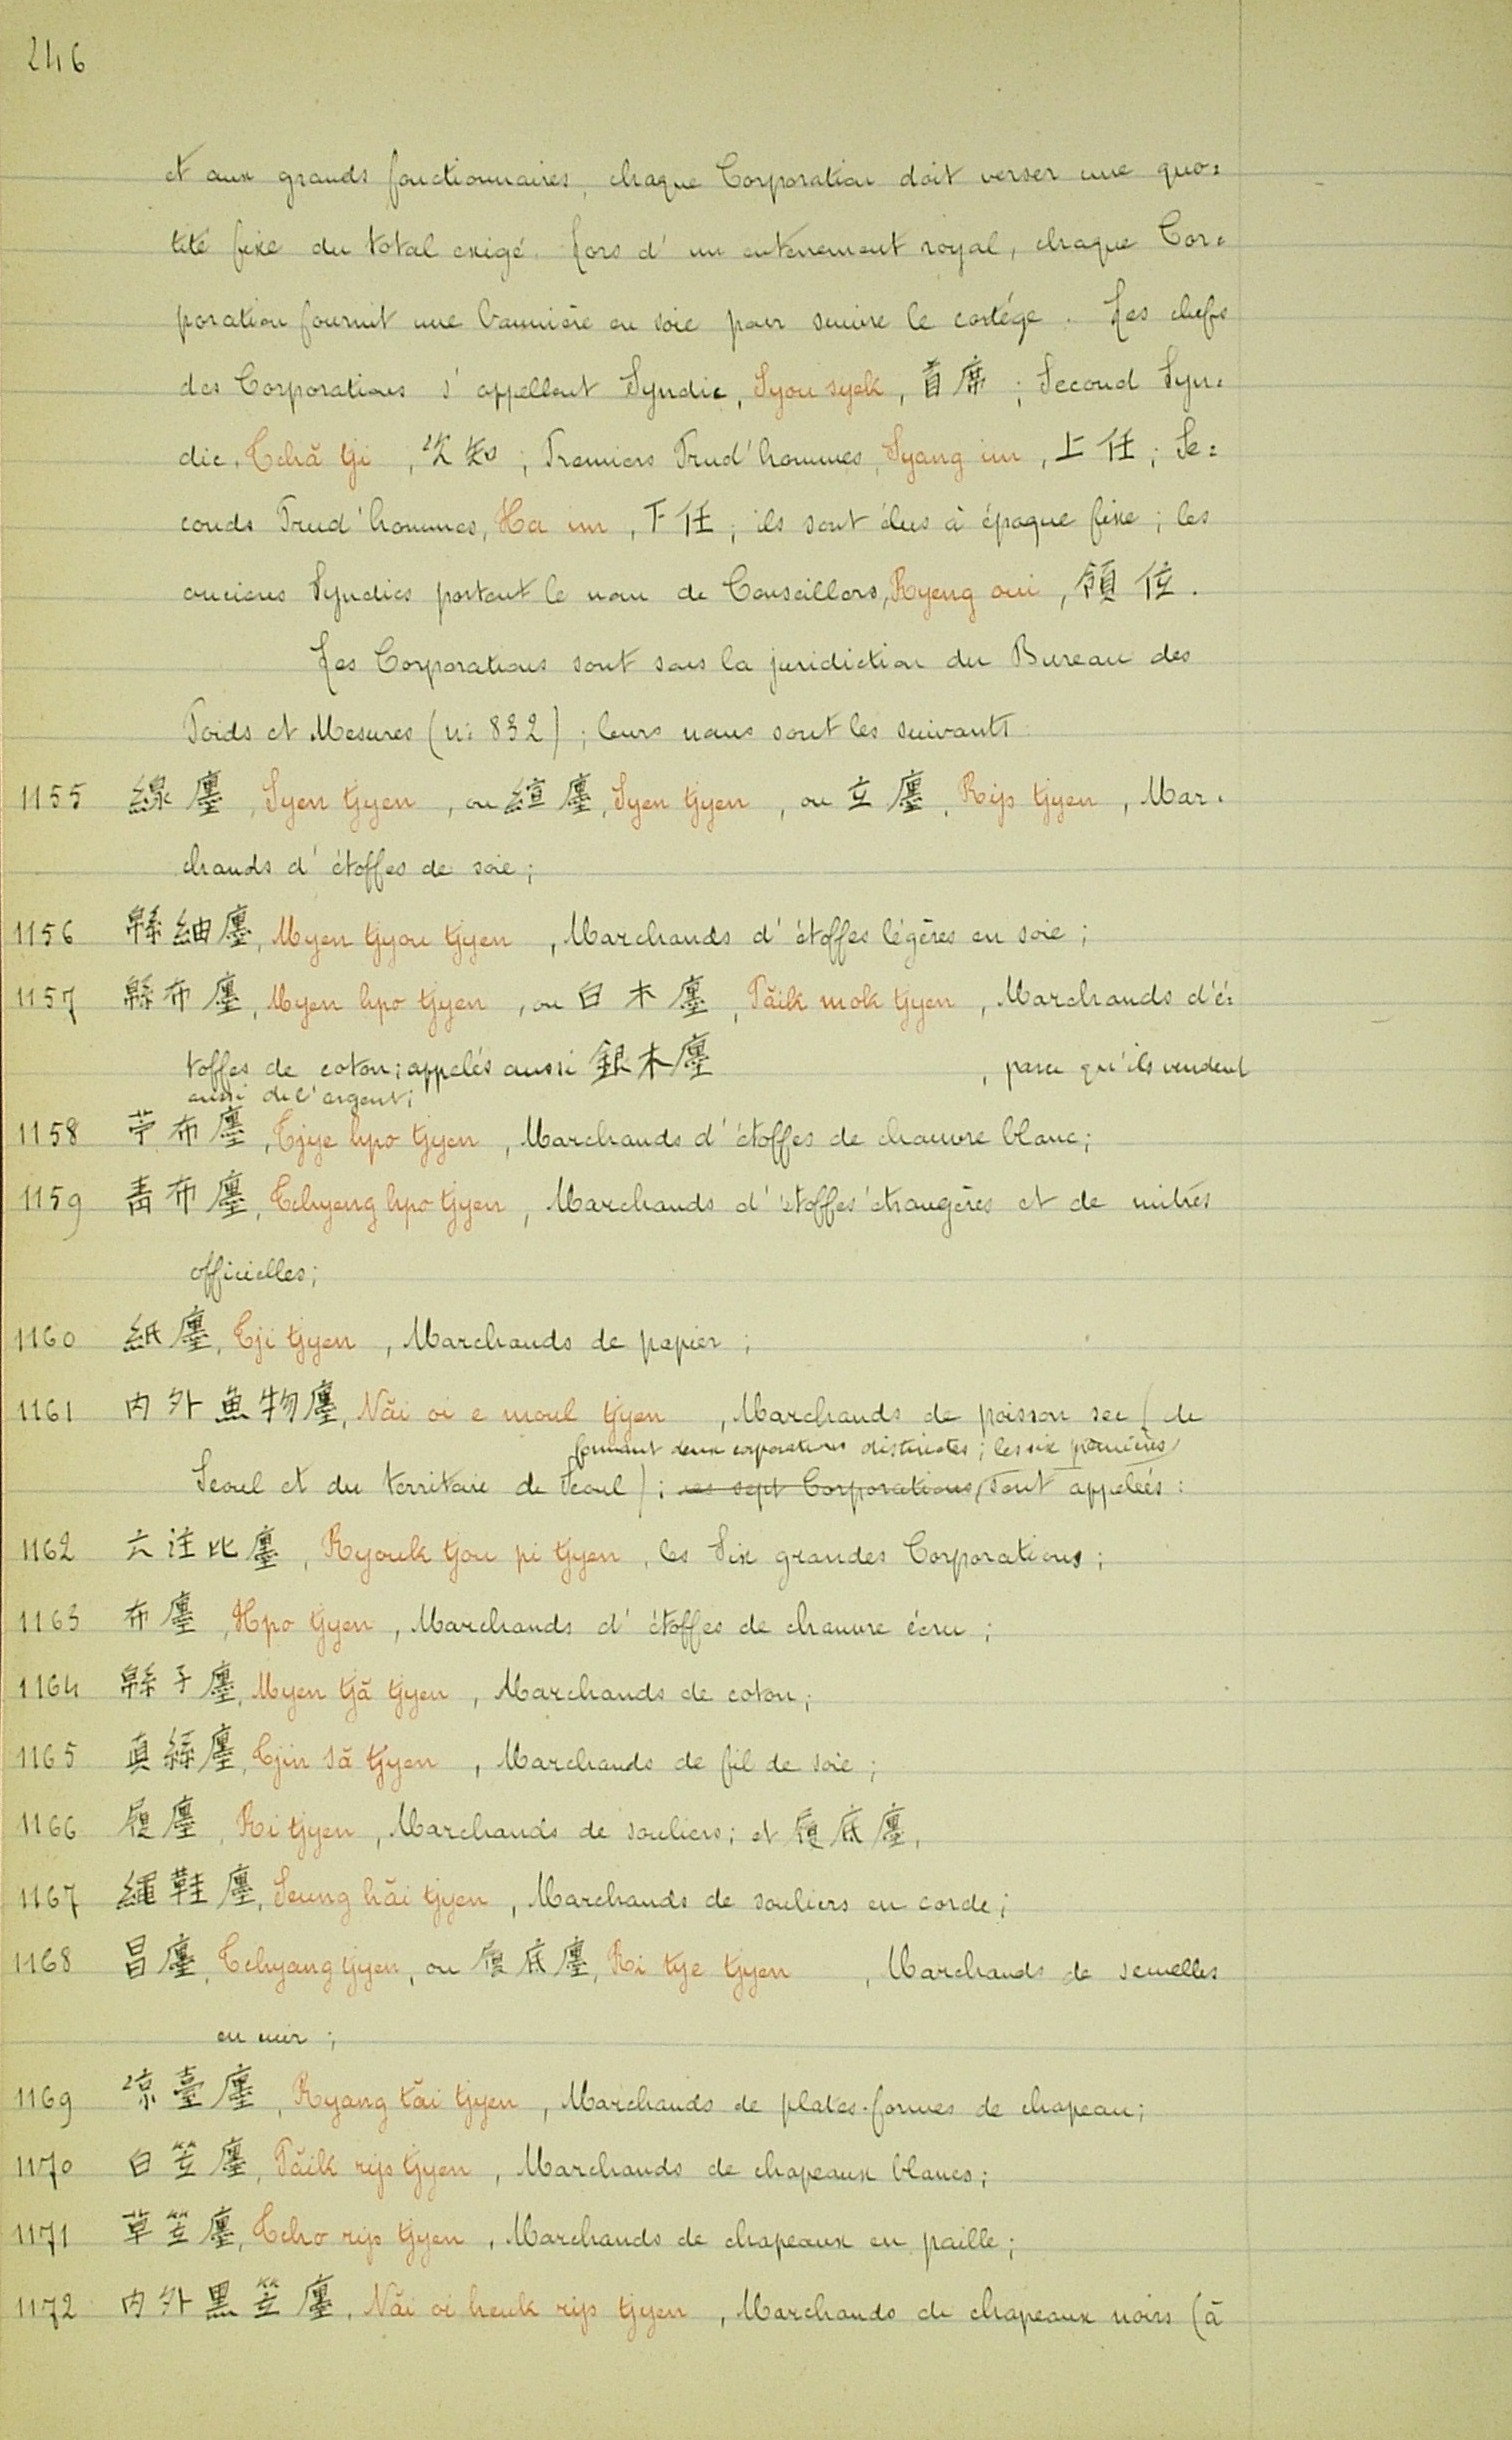 246
et aux grands fonctionnaires, chaque Corporation doit verser une quo=
tité fixe du total exigé. Lors d'un enterrement royal, chaque Cor=
poration fournit une bannière en soie pour suivre le cortége. Les chefs
des Corporations s'appellent Syndic, Syou syek, 首席; Second Syn=
dic, Tchă tji, 次知; Premiers Prud'hommes, Syang im, 上任; Se=
conds Prud'hommes, Ha im, 下任; ils sont élus à époque fixe; les
anciens Syndics portent le nom de Conseillers, Ryeng oui, 領位.
Les Corporations sont sous la juridiction du Bureau des
Poids et Mesures (n: 832); leurs noms sont les suivants
1155 線廛, Syen tjyen, ou 縇廛, Syen tjyen, ou 立廛, Rip tjyen, Mar=
chands d'étoffes de soie;
1156 緜紬廛, Myen tjyou tjyen, Marchands d'étoffes légères en soie;
1157 緜布廛, Myen hpo tjyen, ou 白木廛, Păik mok tjyen, Marchands d'é=
toffes de coton; appelés aussi 銀木廛 , parce qu'ils vendent
aussi de l'argent;
1158 苧布廛, Tjye hpo tjyen, Marchands d'étoffes de chanvre blanc;
1159 靑布廛, Tchyeng hpo tjyen, Marchands d'étoffes étrangères et de mitres
officielles;
1160 紙廛, Tji tjyen, Marchands de papier;
1161 內外魚物廛, Năi oi e moul tjyen, Marchands de poisson sec (de
formant deux corporations distinctes; les six premières
Seoul et du territoire de Seoul); ces sept Corporations, sont appelées:
1162 六注比廛, Ryouk tjou pi tjyen, les Six grandes Corporations;
1163 布廛, Hpo tjyen, Marchands d'étoffes de chanvre écru;
1164 緜子廛, Myen tjă tjyen, Marchands de coton;
1165 眞絲廛, Tjin să tjyen, Marchands de fil de soie;
1166 履廛, Ri tjyen, Marchands de souliers; et 履底廛,
1167 繩鞋廛, Seung hăi tjyen, Marchands de souliers en corde;
1168 昌廛, Tchyang tjyen, ou 履底廛, Ri tye tjyen, Marchands de semelles
en cuir;
1169 凉臺廛, Ryang tăi tjyen, Marchands de plates-formes de chapeau;
1170 白笠廛, Păik rip tjyen, Marchands de chapeaux blancs;
1171 草笠廛, Tcho rip tjyen, Marchands de chapeaux en paille;
1172 內外黑笠廛, Năi oi heuk rip tjyen, Marchands de chapeaux noirs (à